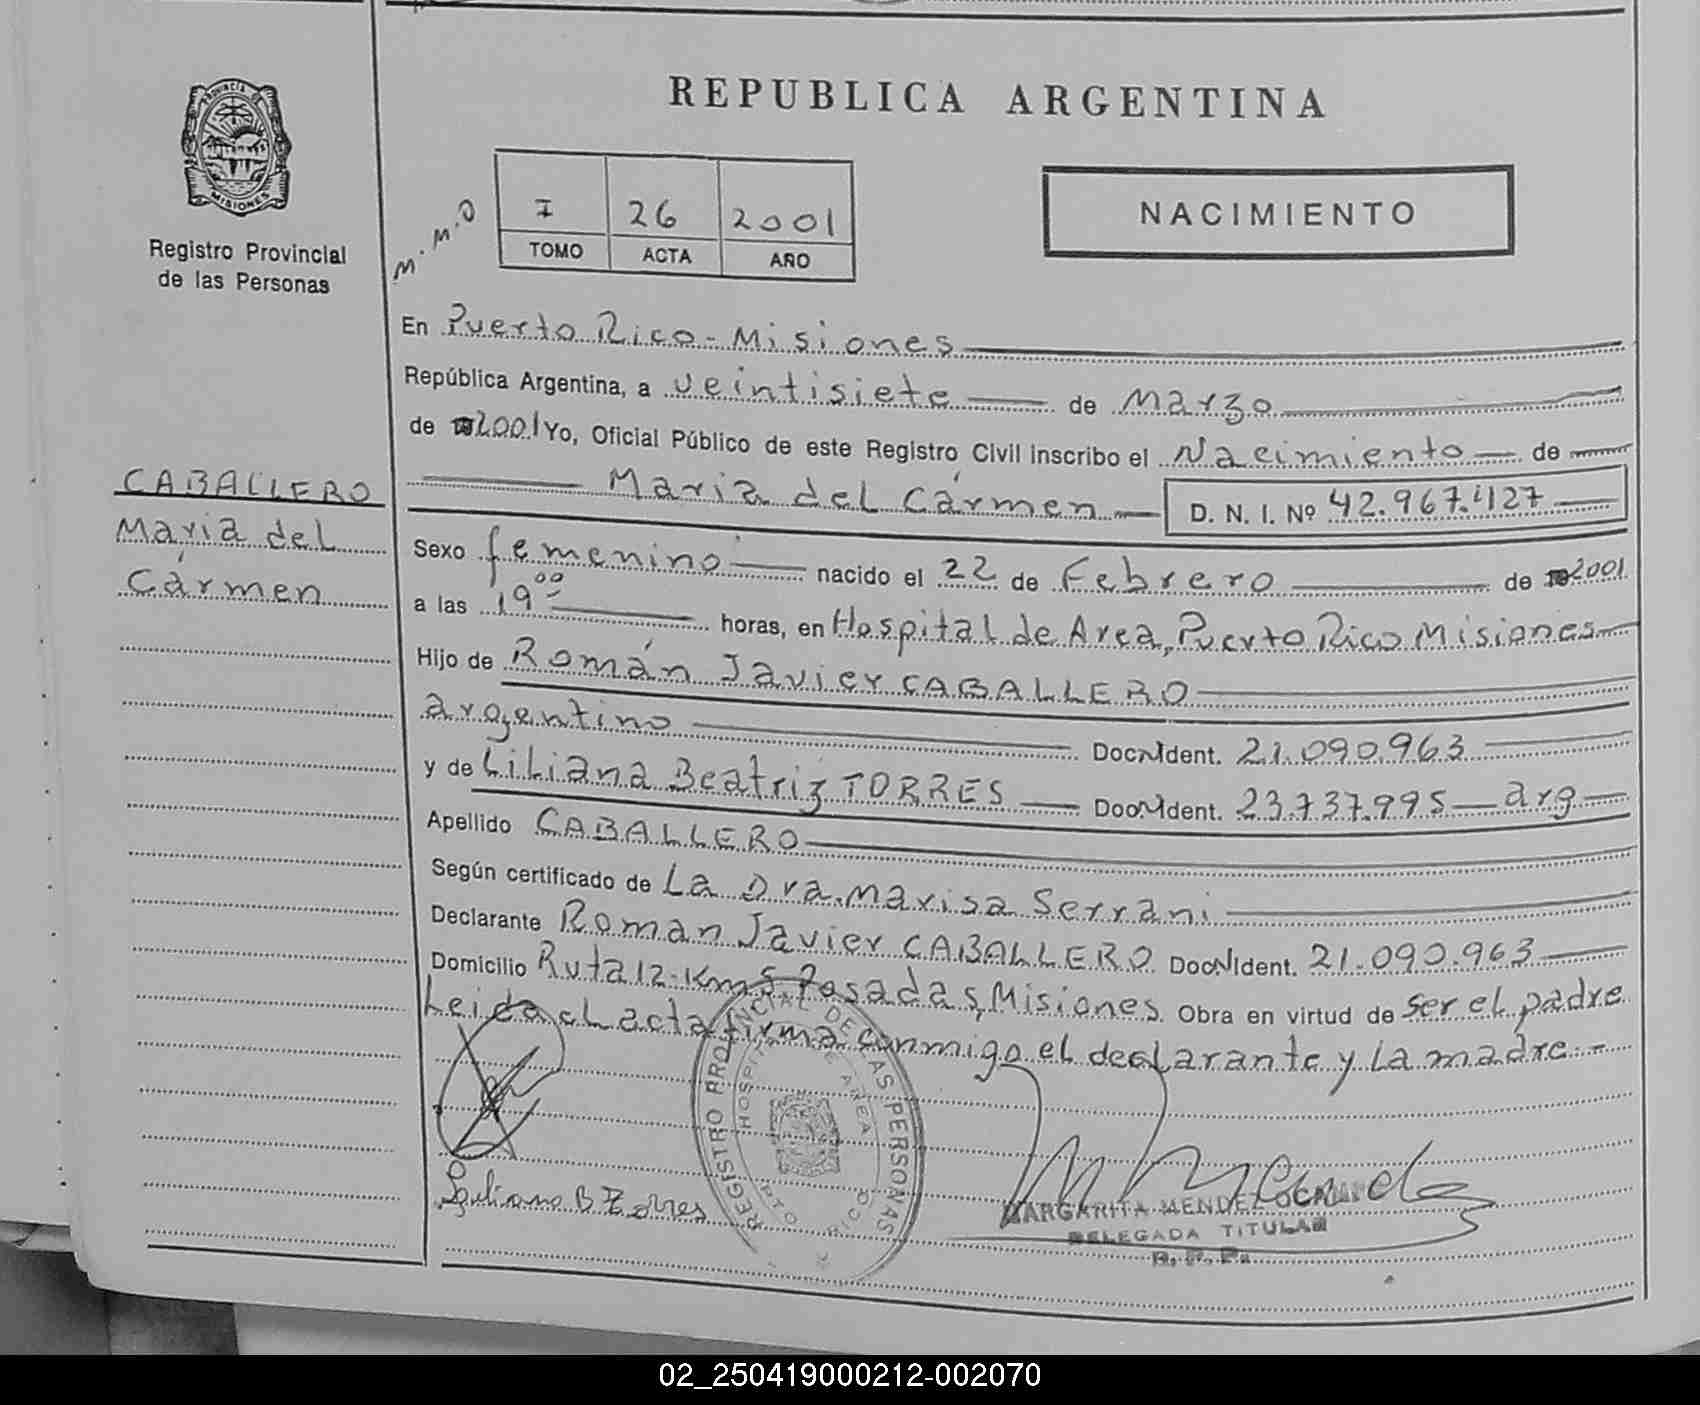 REPUBLICA ARGENTINA
PROVINCIA DE
MISIONES
Registro Provincial
de las Personas
M.M.O
I 26 2001
TOMO ACTA AÑO
NACIMIENTO
En Puerto Rico - Misiones
República Argentina, a veintisiete de Marzo
de 2001 Yo, Oficial Público de este Registro Civil inscribo el Nacimiento de
María del Cármen D. N. I. Nº 42.967.127
CABALLERO
María del
Cármen
Sexo femenino nacido el 22 de Febrero de 2001
a las 19 00 horas, en Hospital de Area, Puerto Rico Misiones
Hijo de Román Javier CABALLERO
argentino Doc. Ident. 21.090.963
y de Liliana Beatriz TORRES Doc. Ident. 23.737.995 arg
Apellido CABALLERO
Según certificado de La Dra. Marisa Serrani
Declarante Roman Javier CABALLERO Doc. Ident. 21.090.963
Domicilio Ruta 12 - Km 5 Posadas, Misiones Obra en virtud de Ser el padre
Leida el acta firma conmigo el declarante y La madre.-
REGISTRO PROVINCIAL DE LAS PERSONAS
HOSPITAL DE AREA
PTO RICO
Liliana B Torres
MARGARITA MENDEZ OCAMPO
DELEGADA TITULAR
R.P.P.
02_250419000212-002070